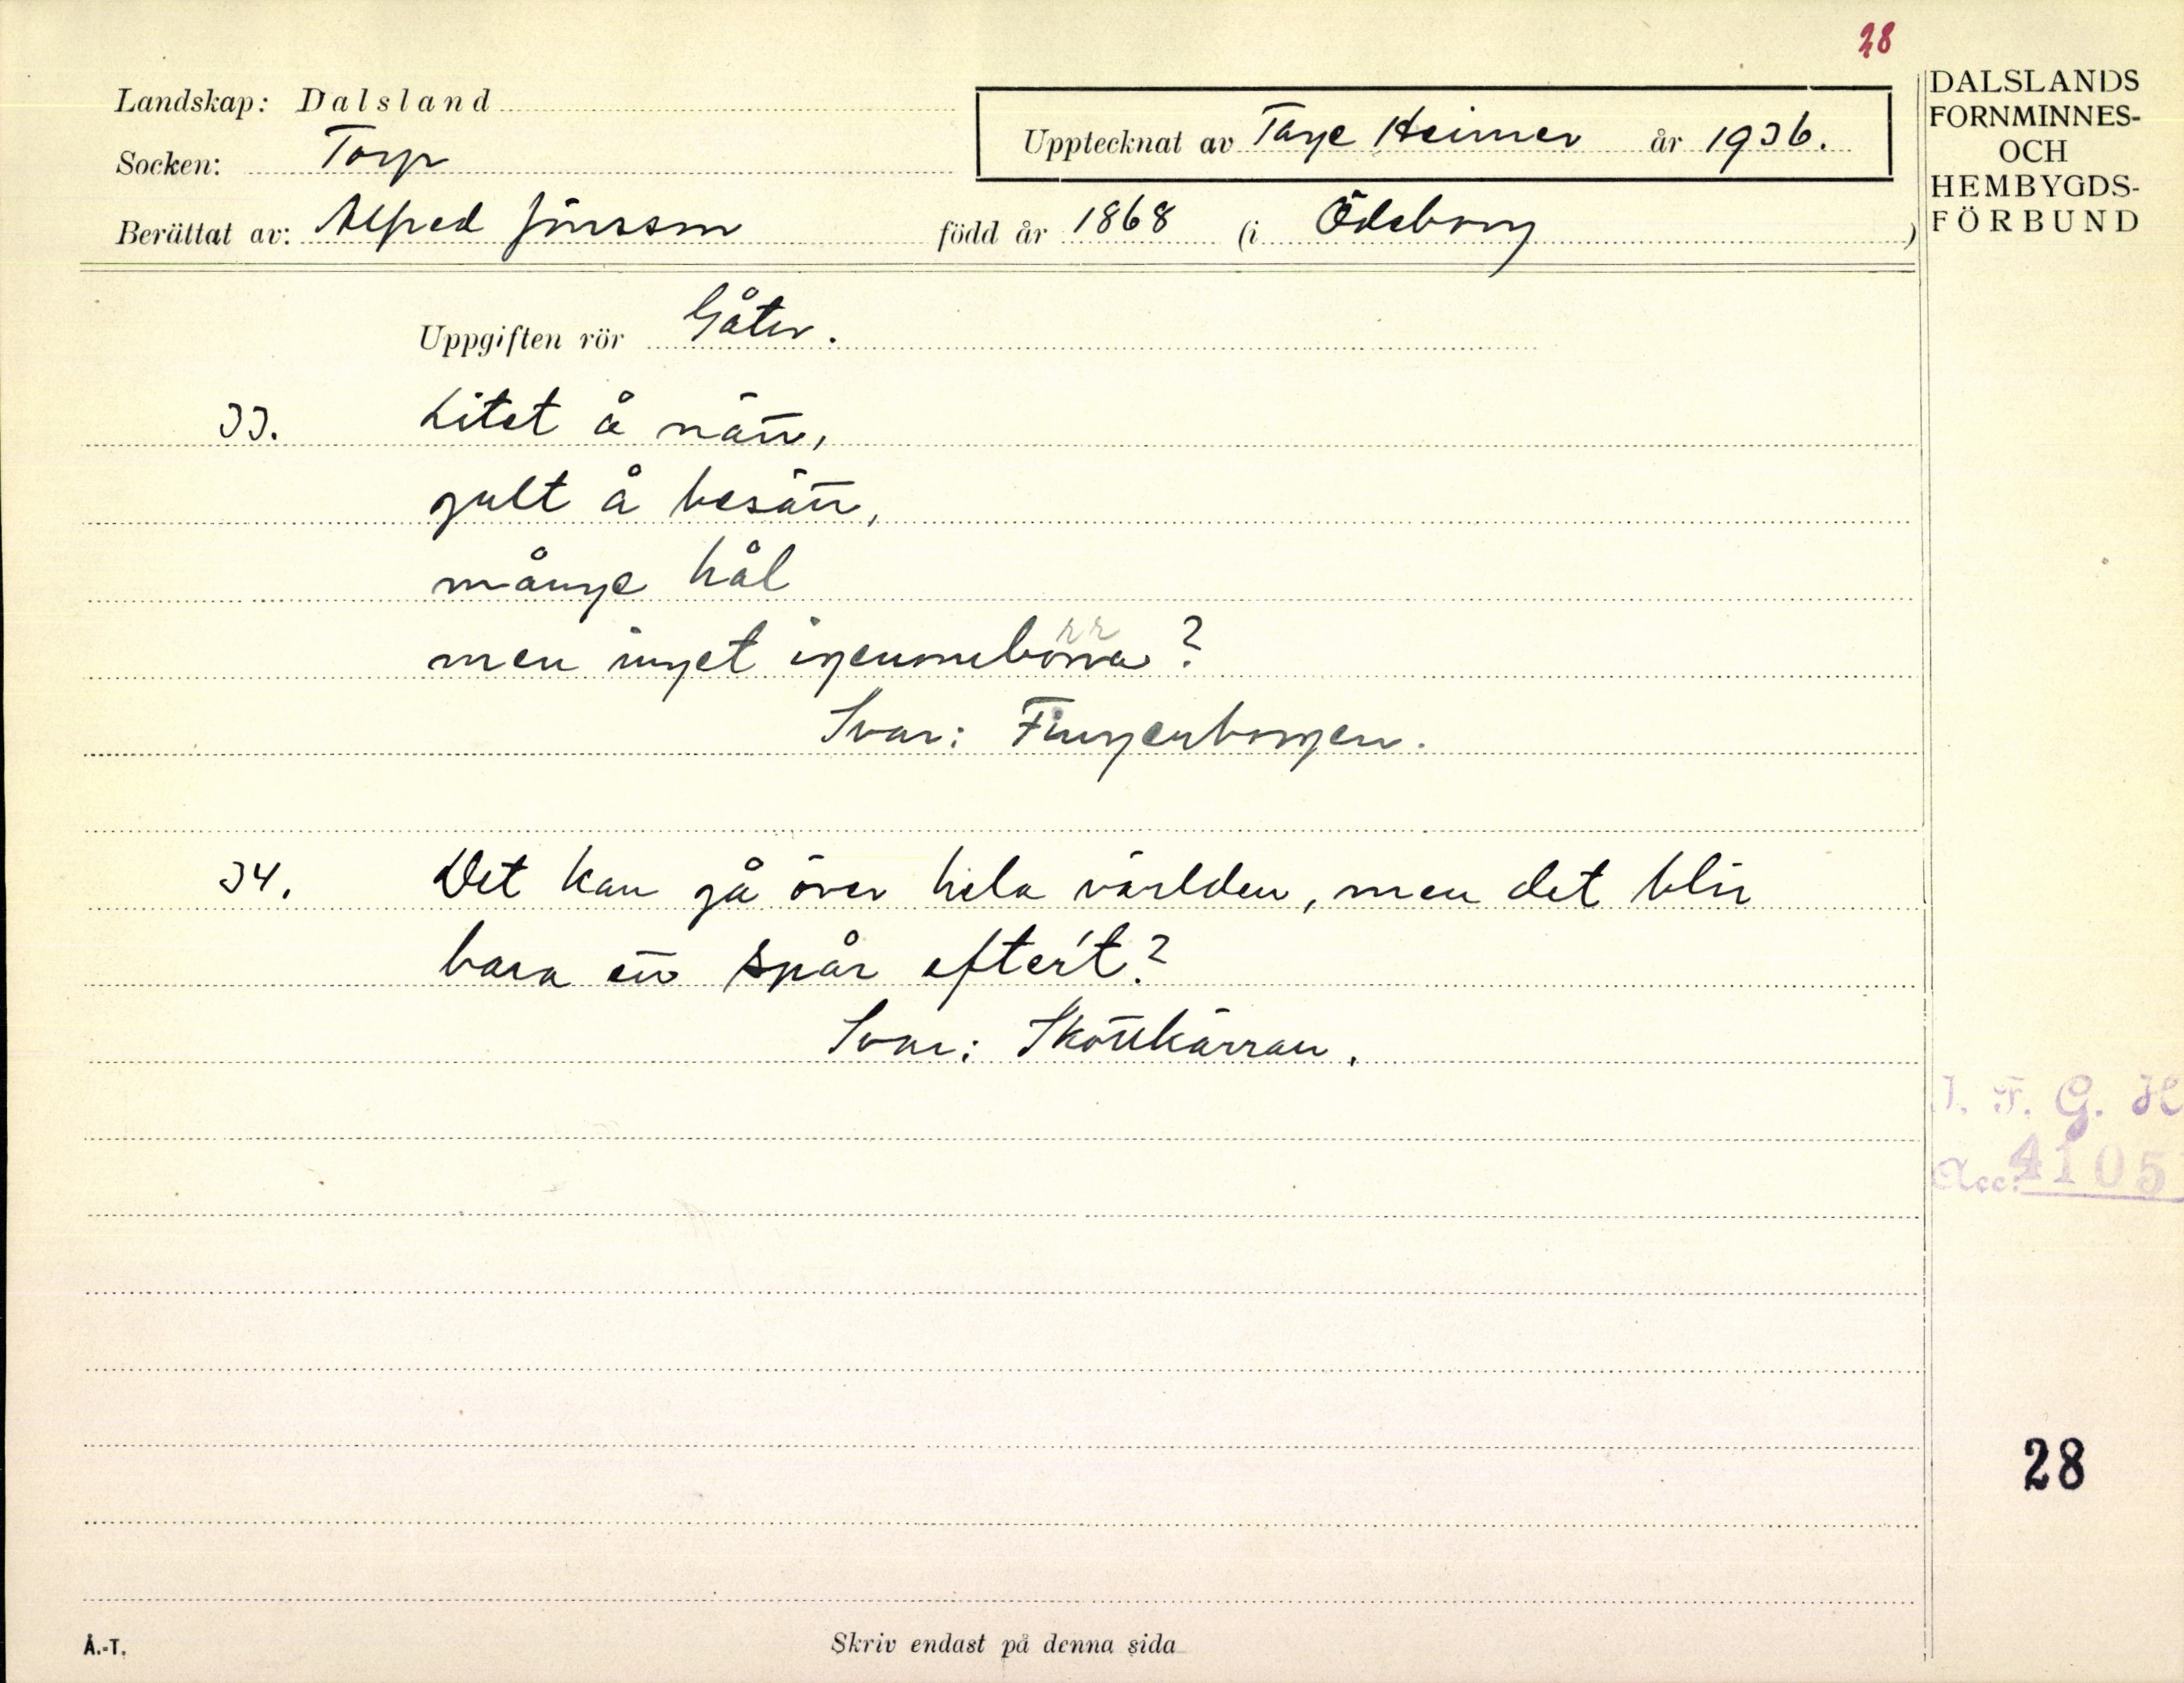 28
Landskap: Dalsland
Socken: Torp
Upptecknat av Tage Heimer år 1936.
Berättat av: Alfred Jönsson född år 1868 (i Ödeborg)
DALSLANDS
FORNMINNES-
OCH
HEMBYGDS-
FÖRBUND
Uppgiften rör Gåter.
33. Litet å nätt,
gult å besätt,
månge hål
men inget igenombörra?
rr
Svar: Fingerborgen.
34. Det kan gå över hela världen, men det blir
bara ett spår efter't?
Svar: Skottkärran.
I. F. G. H
Acc. 4105
28
Å.-T.
Skriv endast på denna sida